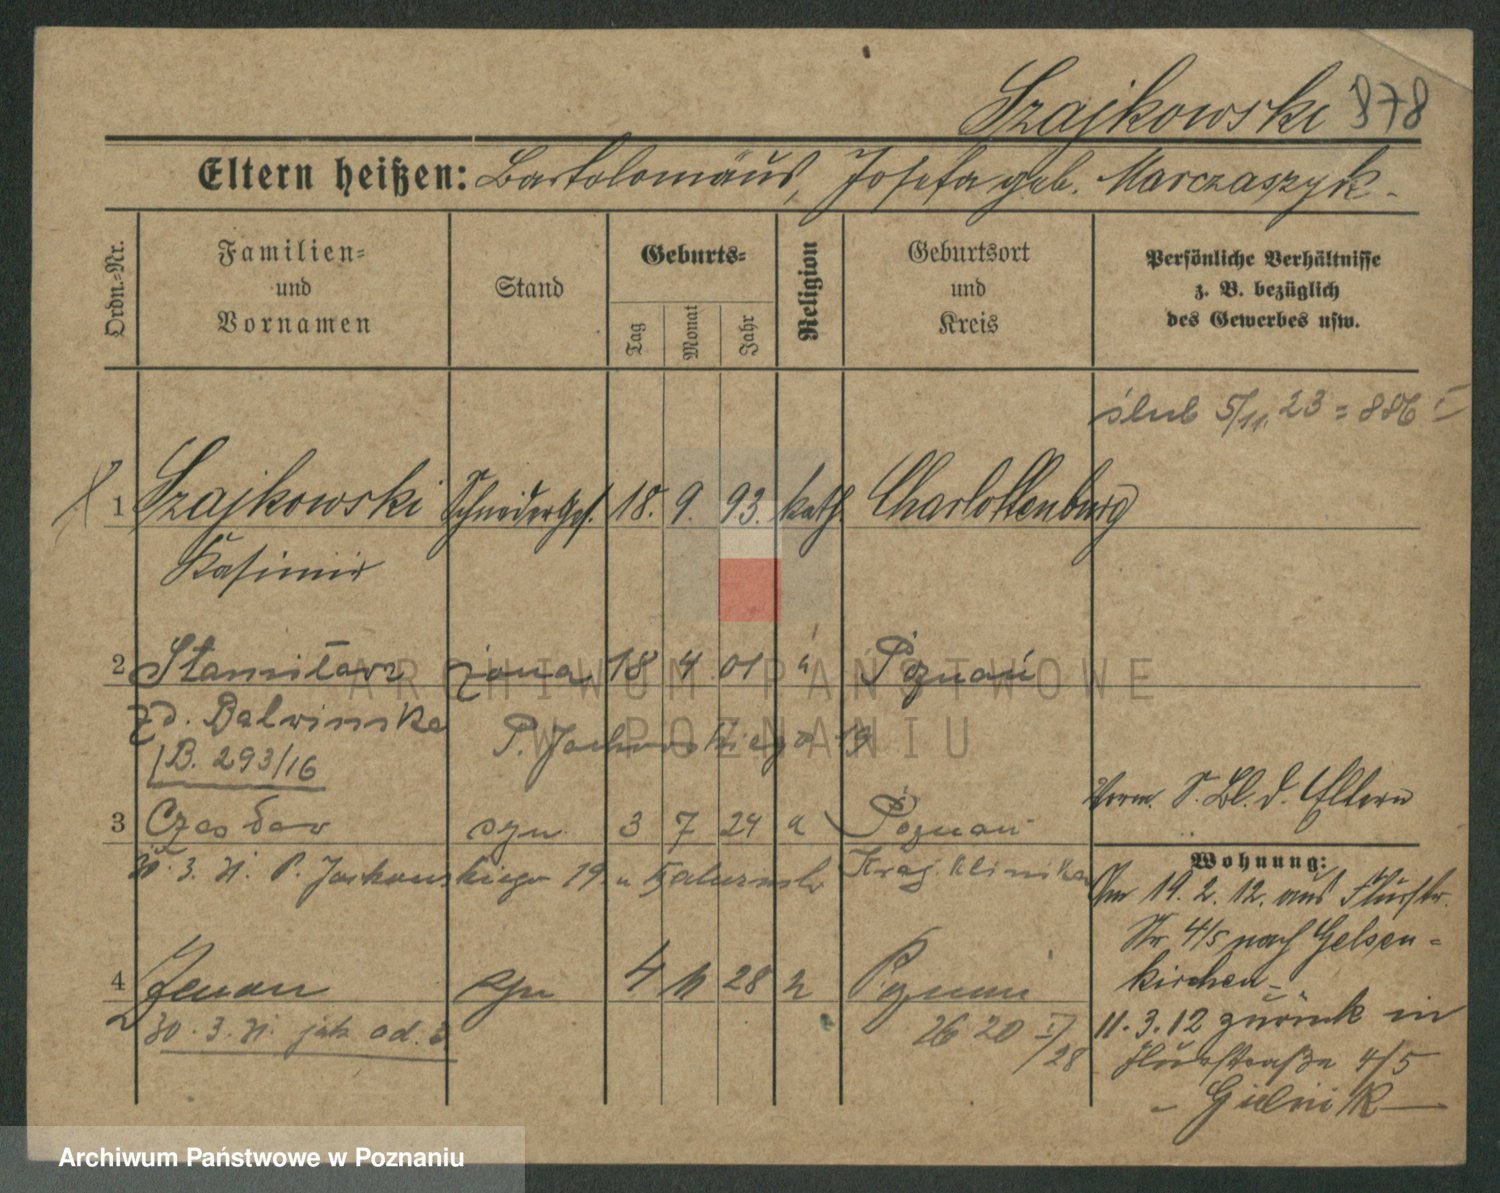 Szajkowski 878
Eltern heißen: Bartolomäus, Josefa geb. Marczaszyk
Ordn.-Nr.
Familien- und Vornamen
Stand
Geburts-
Tag
Monat
Jahr
Religion
Geburtsort und Kreis
Persönliche Verhältnisse
z. B. bezüglich
des Gewerbes usw.
ślub 5/11. 23 = 886 I
1 Szajkowski Schneiderges. 18. 9. 93. kath. Charlottenburg
Kasimir
2 Stanisława żona 18 4 01 " Poznań
zd. Balwinska
B. 293/16
P. Jackowskiego 19
Verm. S. Bl. d. Eltern
3 Czesław syn 3 7 24 Poznań
30. 3. 31. P. Jackowskiego 19 u Kraj. Klinika
Wohnung:
Am 19. 2. 12. aus Flurstr.
Nr. 4/5 nach Gelsen-
kirchen
4 Zenon syn 4 11 28 Poznań
30. 3. 31. jak od. 3
26 20 I/28
11. 3. 12 zurück in
Flurstraße 4/5
- Gielnik -
ARCHIWUM PAŃSTWOWE
W POZNANIU
Archiwum Państwowe w Poznaniu